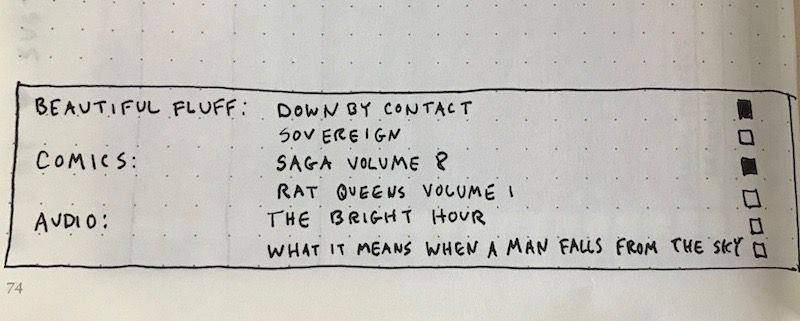 BEAUTIFUL FLUFF: DOWN BY CONTACT
SOVEREIGN
COMICS: SAGA VOLUME 8
RAT QUEENS VOLUME 1
AUDIO: THE BRIGHT HOUR
WHAT IT MEANS WHEN A MAN FALLS FROM THE SKY
74